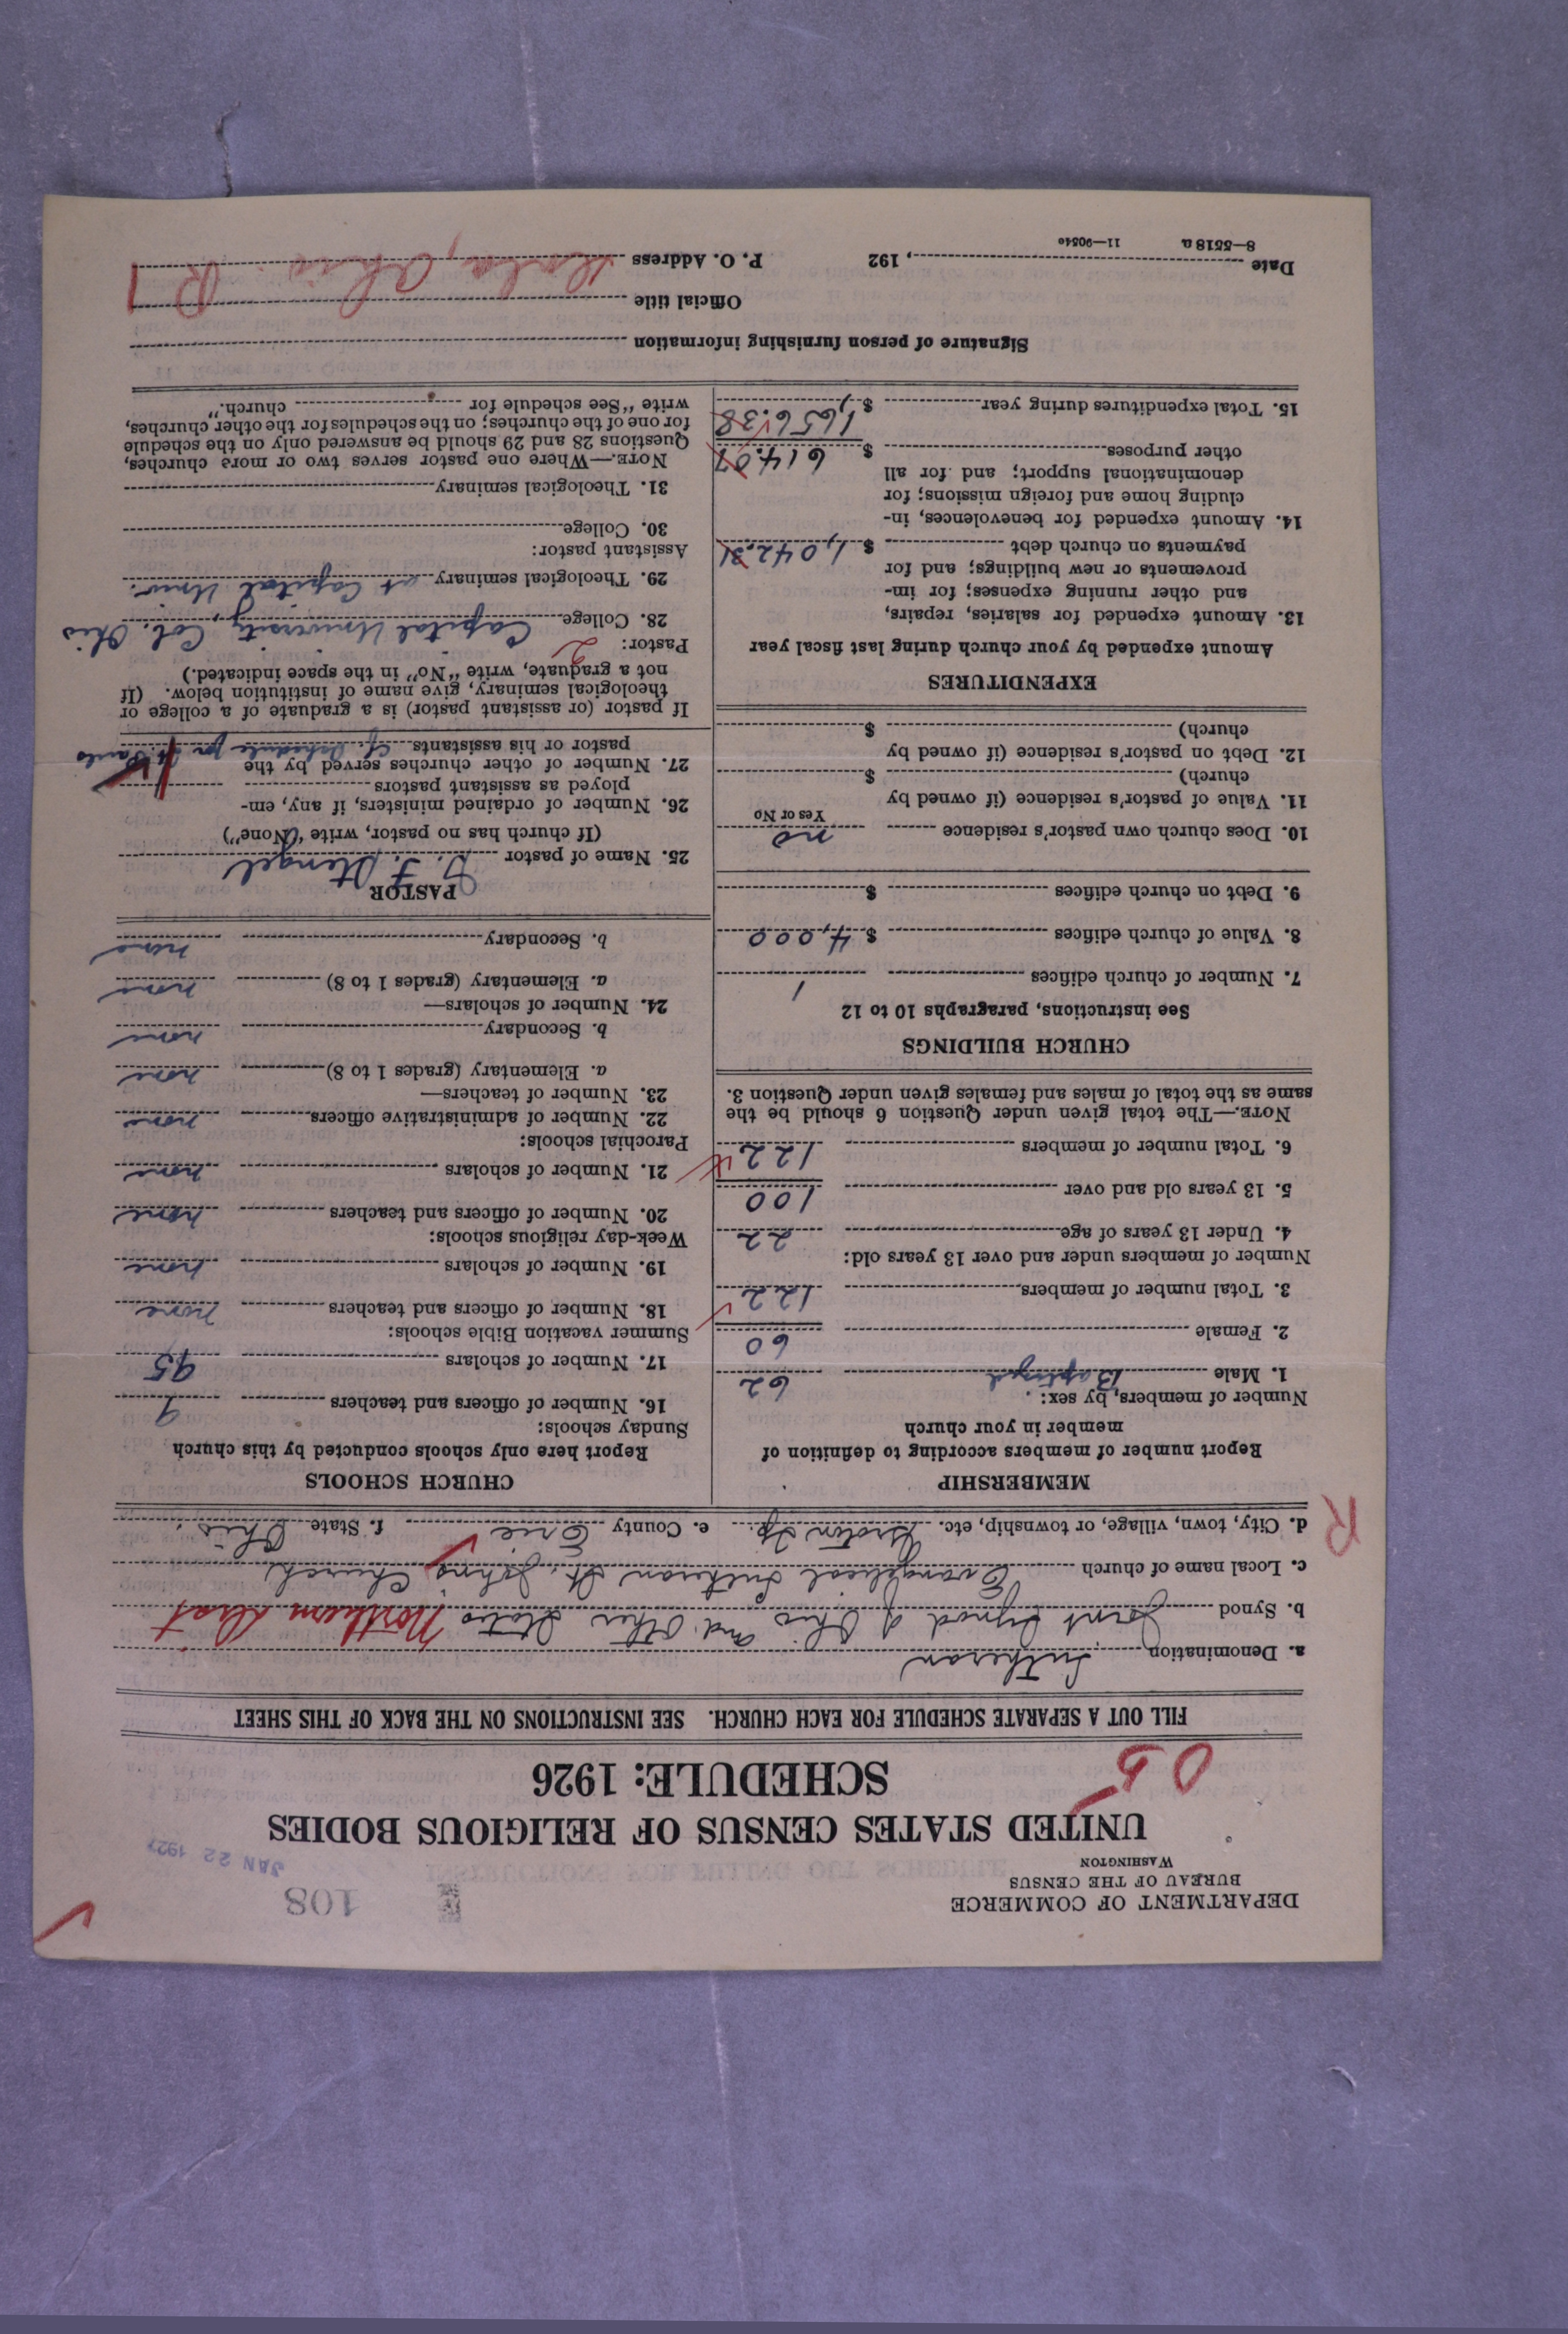 DEPARTMENT OF COMMERCE
BUREAU OF THE CENSUS
WASHINGTON
108
JAN 22 1927
UNITED STATES CENSUS OF RELIGIOUS BODIES
SCHEDULE: 1926
05
FILL OUT A SEPARATE SCHEDULE FOR EACH CHURCH. SEE INSTRUCTIONS ON THE BACK OF THIS SHEET
a. Denomination Lutheran
b. Synod Joint Synod of Ohio and Other States Northern Dist
c. Local name of church Evangelical Lutheran St. Johns Church
R
d. City, town, village, or township, etc. Groton Tp. e. County Erie f. State Ohio.
MEMBERSHIP
Report number of members according to definition of
member in your church
Number of members, by sex:
1. Male Baptized 62
2. Female 60
3. Total number of members 122
Number of members under and over 13 years old:
4. Under 13 years of age 22
5. 13 years old and over 100
6. Total number of members 122
NOTE.—The total given under Question 6 should be the
same as the total of males and females given under Question 3.
CHURCH BUILDINGS
See instructions, paragraphs 10 to 12
7. Number of church edifices 1
8. Value of church edifices $ 4,000
9. Debt on church edifices $
10. Does church own pastor's residence no
Yes or No
11. Value of pastor's residence (if owned by
church) $
12. Debt on pastor's residence (if owned by
church) $
EXPENDITURES
Amount expended by your church during last fiscal year
13. Amount expended for salaries, repairs,
and other running expenses; for im-
provements or new buildings; and for
payments on church debt $ 1,042.31
14. Amount expended for benevolences, in-
cluding home and foreign missions; for
denominational support; and for all
other purposes $ 614.07
15. Total expenditures during year $ 1,656.38
CHURCH SCHOOLS
Report here only schools conducted by this church
Sunday schools:
16. Number of officers and teachers 9
17. Number of scholars 95
Summer vacation Bible schools:
18. Number of officers and teachers none
19. Number of scholars none
Week-day religious schools:
20. Number of officers and teachers none
21. Number of scholars none
Parochial schools:
22. Number of administrative officers none
23. Number of teachers—
a. Elementary (grades 1 to 8) none
b. Secondary none
24. Number of scholars—
a. Elementary (grades 1 to 8) none
b. Secondary none
PASTOR
25. Name of pastor F. Stengel
(If church has no pastor, write "None")
26. Number of ordained ministers, if any, em-
ployed as assistant pastors
27. Number of other churches served by the
pastor or his assistants cf. schedule for St. Pauls 1
If pastor (or assistant pastor) is a graduate of a college or
theological seminary, give name of institution below. (If
not a graduate, write "No" in the space indicated.)
Pastor: 2
28. College Capital University, Col. Ohio
29. Theological seminary at Capital Univ.
Assistant pastor:
30. College
31. Theological seminary
NOTE.—Where one pastor serves two or more churches,
Questions 28 and 29 should be answered only on the schedule
for one of the churches; on the schedules for the other churches,
write "See schedule for church."
Signature of person furnishing information
Official title
Date , 192 P. O. Address Ohio R 1
8—5518 a 11—9054c